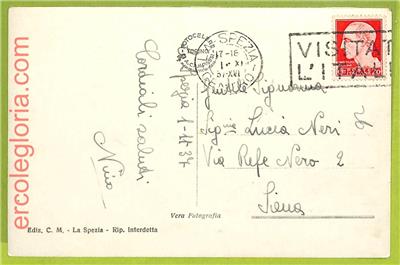 Cordiali saluti
Spezia 1-11-37
Nino
SPEZIA
17-18
1•XI
37•XVI
VISITAT
L'ITA
Gentile Signorina
Sig.na Lucia Neri
Via Refe Nero 2
Siena
Vera Fotografia
Ediz. C. M. - La Spezia - Rip. Interdetta
ercolegloria.com